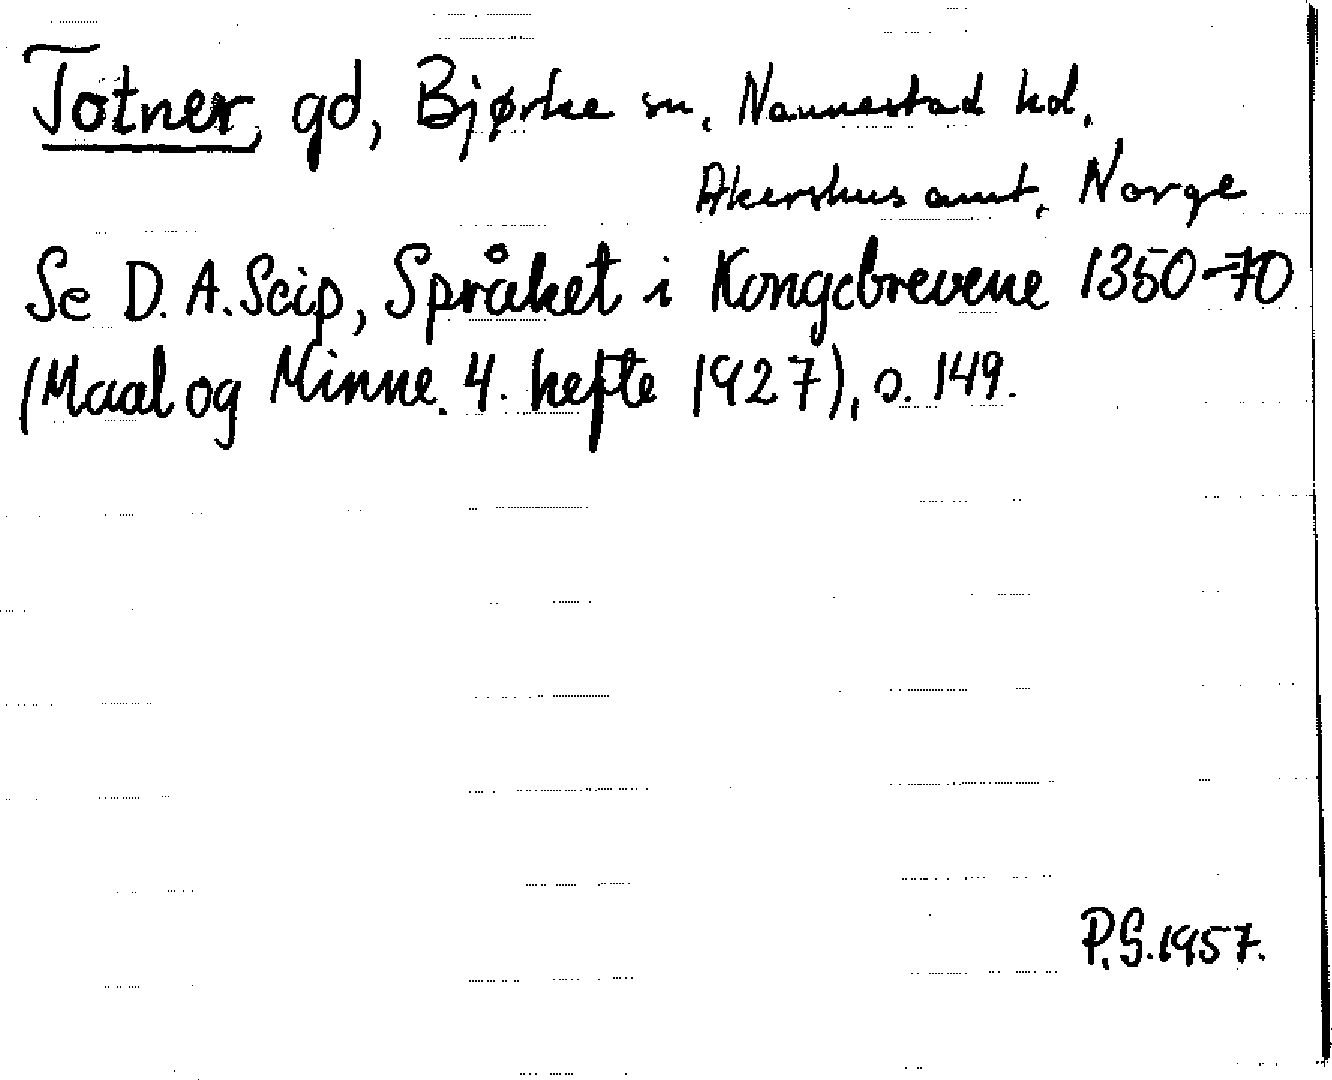 Totner, gd, Bjørke sn, Nannestad hd,
Akershus amt, Norge
Se D. A. Seip, Språket i Kongebrevene 1350-70
(Maal og Minne. 4. hefte 1927), s. 149.
P.S. 1957.